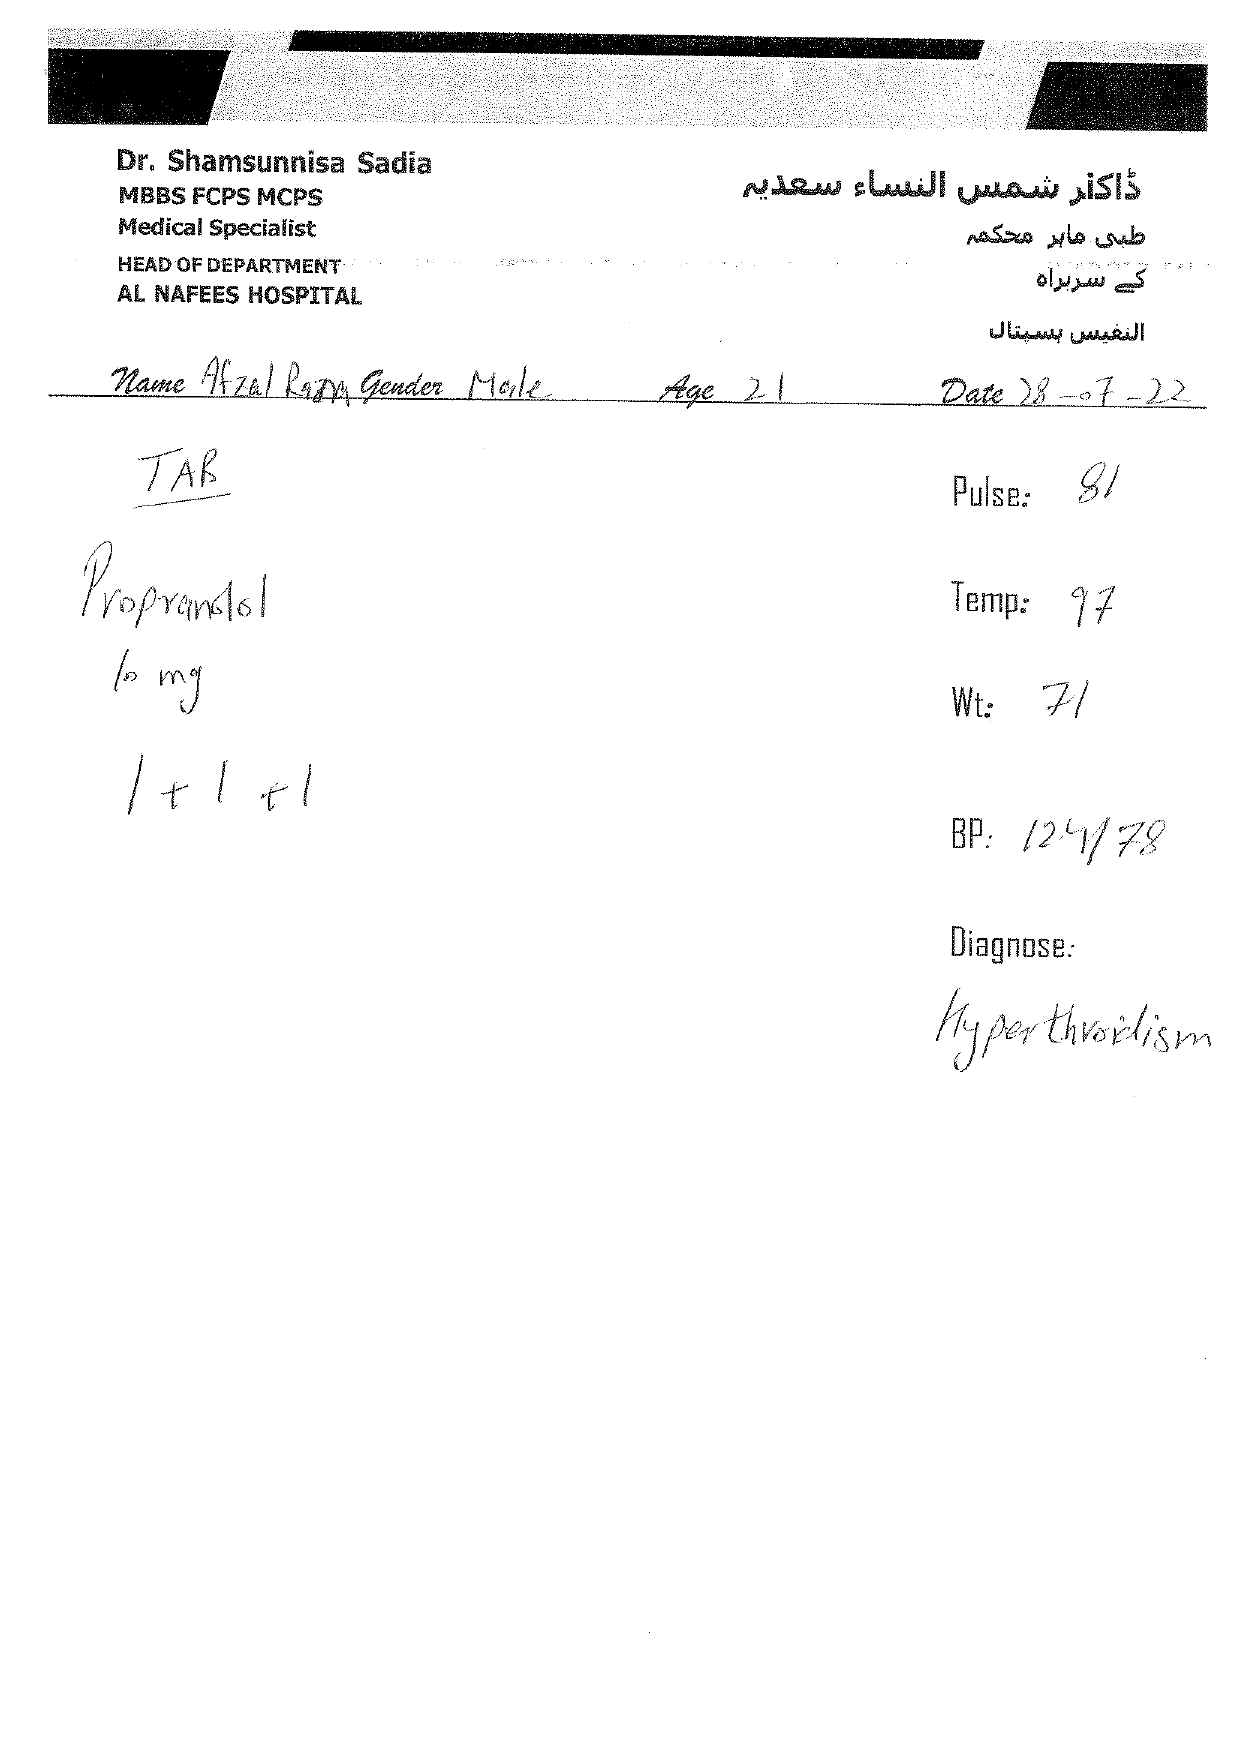 Dr. Shamsunnisa Sadia
MBBS FCPS MCPS
Medical Specialist
HEAD OF DEPARTMENT
AL NAFEES HOSPITAL
ڈاکٹر شمس النساء سعدیہ
طبی ماہر محکمہ
کے سربراہ
النفیس ہسپتال
Name Afzal Gender Male Age 21 Date 28-07-22
TAB
Propranolol
10 mg
1 + 1 + 1
Pulse: 81
Temp: 97
Wt: 71
BP: 124/78
Diagnose:
Hyperthroidism